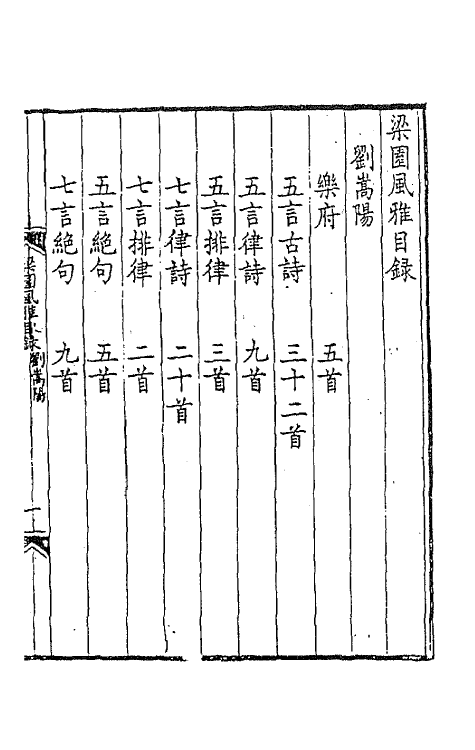 梁園風雅目録
劉嵩陽
樂府 五首
五言古詩 三十二首
五言律詩 九首
五言排律 三首
七言律詩 二十首
七言排律 二首
五言絕句 五首
七言絕句 九首
梁園風雅目録 劉嵩陽 一